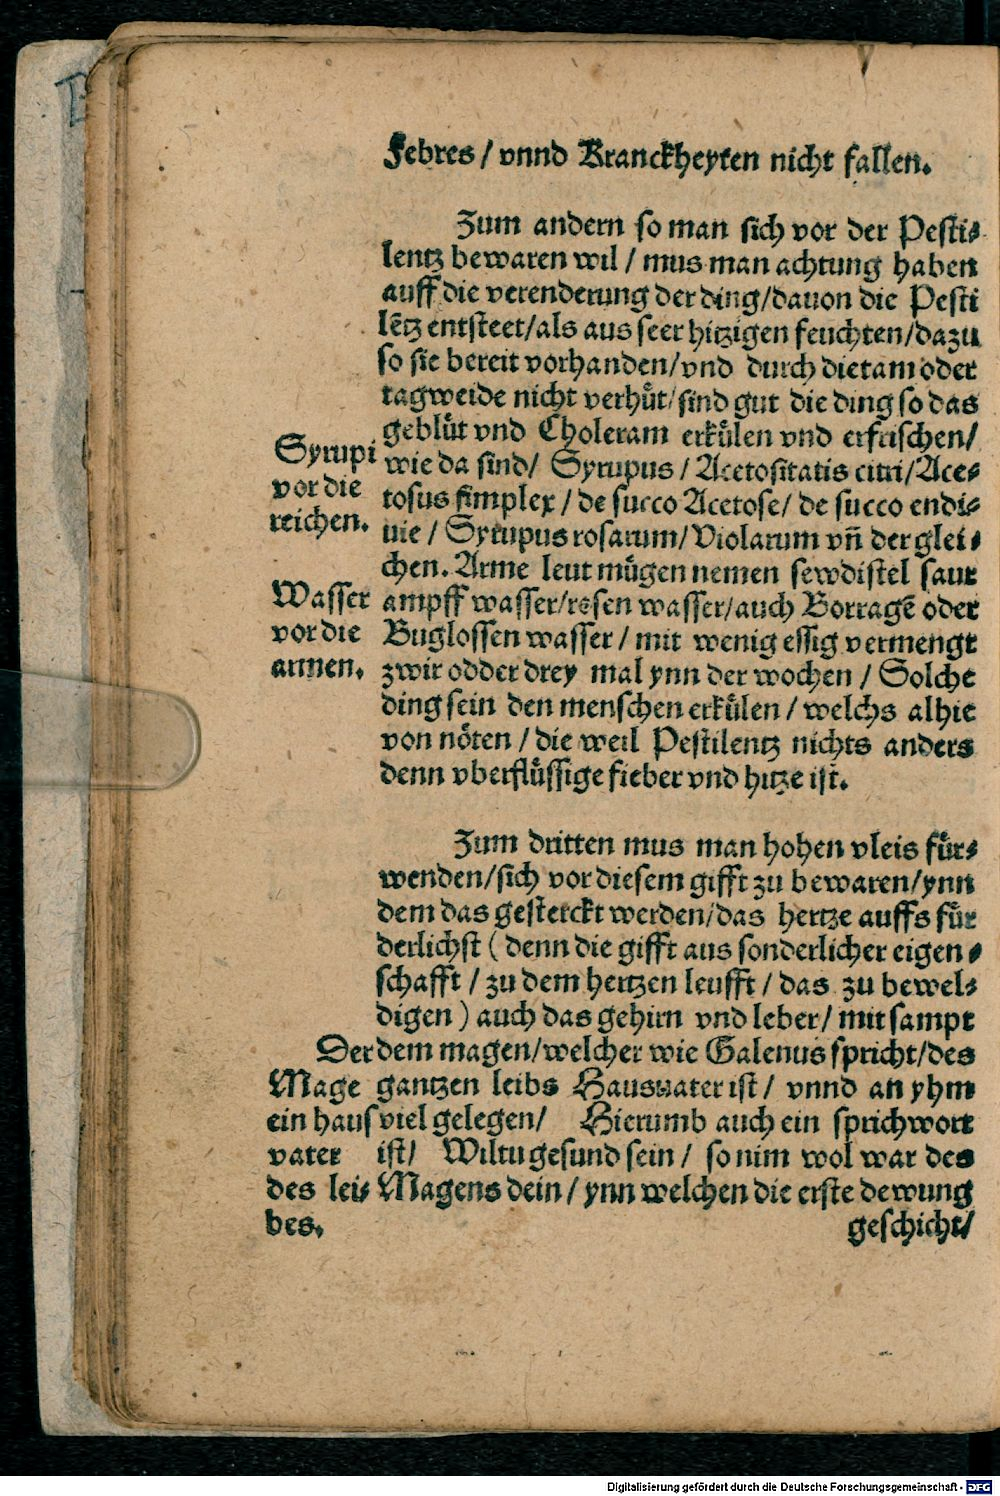 Febres / vnnd Kranckheyten nicht fallen.
Zum andern so man sich vor der Pesti⸗
lentz bewaren wil / mus man achtung haben
auff die verenderung der ding/dauon die Pesti
lētz entsteet/als aus seer hitzigen feuchten/dazu
so sie bereit vorhanden/vnd durch dietam oder
tagweide nicht verhuͤt/sind gut die ding so das
gebluͤt vnd Choleram erkuͤlen vnd erfrischen/
wie da sind/ Syrupus / Acetositatis citri/Ace⸗
tosus simplex / de succo Acetose/ de succo endi⸗
uie / Syrupus rosarum/Violarum vñ der glei⸗
chen. Arme leut muͤgen nemen sewdistel saur
ampff wasser/rosen wasser/auch Borragē oder
Buglossen wasser / mit wenig essig vermengt
zwir odder drey mal ynn der wochen / Solche
ding sein den menschen erkuͤlen / welchs alhie
von noͤten / die weil Pestilentz nichts anders
denn vberfluͤssige fieber vnd hitze ist.
Syrupi
vor die
reichen.
Wasser
vor die
armen.
Zum dritten mus man hohen vleis fuͤr⸗
wenden/sich vor diesem gifft zu bewaren/ynn
dem das gesterckt werden/das hertze auffs fuͤr
derlichst ( denn die gifft aus sonderlicher eigen⸗
schafft / zu dem hertzen leufft / das zu bewel⸗
digen ) auch das gehirn vnd leber/ mit sampt
dem magen/welcher wie Galenus spricht/des
gantzen leibs Hausuater ist / vnnd an yhm
viel gelegen/ Hierumb auch ein sprichwort
ist/ Wiltu gesund sein / so nim wol war des
Magens dein / ynn welchen die erste dewung
geschicht/
Der
Mage
ein haus
vater
des lei⸗
bes.
Digitalisierung gefördert durch die Deutsche Forschungsgemeinschaft - DFG